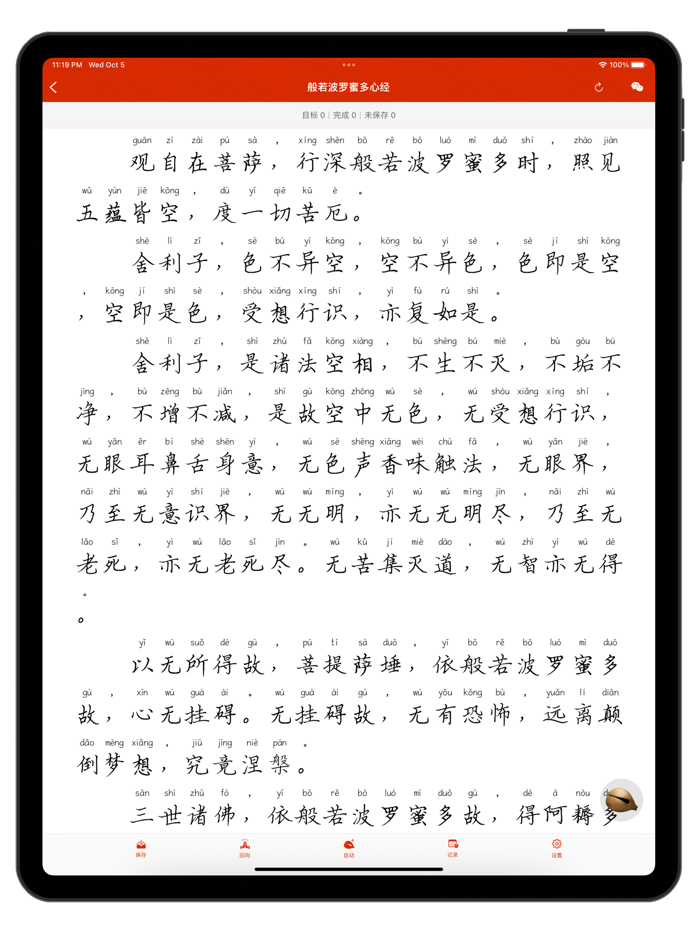 11:19 PM Wed Oct 5 100%
般若波罗蜜多心经
目标 0 | 完成 0 | 未保存 0
guān zì zài pú sà ， xíng shēn bō rě bō luó mì duō shí ， zhào jiàn
观自在菩萨，行深般若波罗蜜多时，照见
wǔ yùn jiē kōng ， dù yī qiè kǔ è 。
五蕴皆空，度一切苦厄。
shè lì zǐ ， sè bú yì kōng ， kōng bú yì sè ， sè jí shì kōng
舍利子，色不异空，空不异色，色即是空
， kōng jí shì sè ， shòu xiǎng xíng shí ， yì fù rú shì 。
，空即是色，受想行识，亦复如是。
shè lì zǐ ， shì zhū fǎ kōng xiàng ， bù shēng bú miè ， bú gòu bú
舍利子，是诸法空相，不生不灭，不垢不
jìng ， bù zēng bù jiǎn ， shì gù kōng zhōng wú sè ， wú shòu xiǎng xíng shí ，
净，不增不减，是故空中无色，无受想行识，
wú yǎn ěr bí shé shēn yì ， wú sè shēng xiāng wèi chù fǎ ， wú yǎn jiè ，
无眼耳鼻舌身意，无色声香味触法，无眼界，
nǎi zhì wú yì shí jiè ， wú wú míng ， yì wú wú míng jìn ， nǎi zhì wú
乃至无意识界，无无明，亦无无明尽，乃至无
lǎo sǐ ， yì wú lǎo sǐ jìn 。 wú kǔ jí miè dào ， wú zhì yì wú dé
老死，亦无老死尽。无苦集灭道，无智亦无得
。
。
yǐ wú suǒ dé gù ， pú tí sà duǒ ， yī bō rě bō luó mì duō
以无所得故，菩提萨埵，依般若波罗蜜多
gù ， xīn wú guà ài 。 wú guà ài gù ， wú yǒu kǒng bù ， yuǎn lí diān
故，心无挂碍。无挂碍故，无有恐怖，远离颠
dǎo mèng xiǎng ， jiū jìng niè pán 。
倒梦想，究竟涅槃。
sān shì zhū fó ， yī bō rě bō luó mì duō gù ， dé ā nòu
三世诸佛，依般若波罗蜜多故，得阿耨多
保存 回向 自动 记录 设置